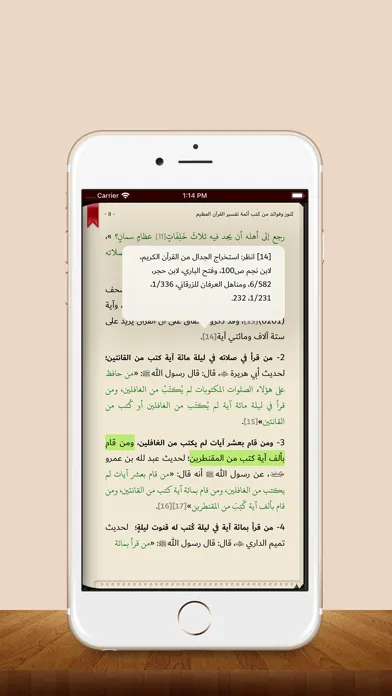 .... Carrier 1:14 PM
كنوز وفوائد من كتب أئمة تفسير القرآن العظيم - 8 -
رجع إلى أهله أن يجد فيه ثلاث خَلِفَاتٍ[11] عظامٍ سمانٍ؟ »،
[14] انظر: استخراج الجدال من القرآن الكريم،
لابن نجم ص100، وفتح الباري، لابن حجر،
6/582، ومناهل العرفان للزرقاني، 1/336،
1/231، 232.
صلاته
صحف
وآية
ستة آلاف ومائتي آية[14].
2- من قرأ في صلاته في ليلة مائة آية كتب من القانتين؛
لحديث أبي هريرة ، قال: قال رسول الله ﷺ: «من حافظ
على هؤلاء الصلوات المكتوبات لم يُكتَبْ من الغافلين، ومن
قرأ في ليلة مائة آية لم يُكتَب من الغافلين أو كُتب من
القانتين»[15].
3- ومن قام بعشر آيات لم يكتب من الغافلين، ومن قام
بألف آية كتب من المقنطرين؛ لحديث عبد لله بن عمرو
، عن رسول الله ﷺ أنه قال: «من قام بعشر آيات لم
يكتب من الغافلين، ومن قام بمائة آية كتب من القانتين، ومن
قام بألف آية كُتِبَ من المقنطرين»[16][17].
4- من قرأ بمائة آية في ليلة كُتب له قنوت ليلةٍ؛ لحديث
تميم الداري ، قال: قال رسول الله ﷺ: «من قرأ بمائة